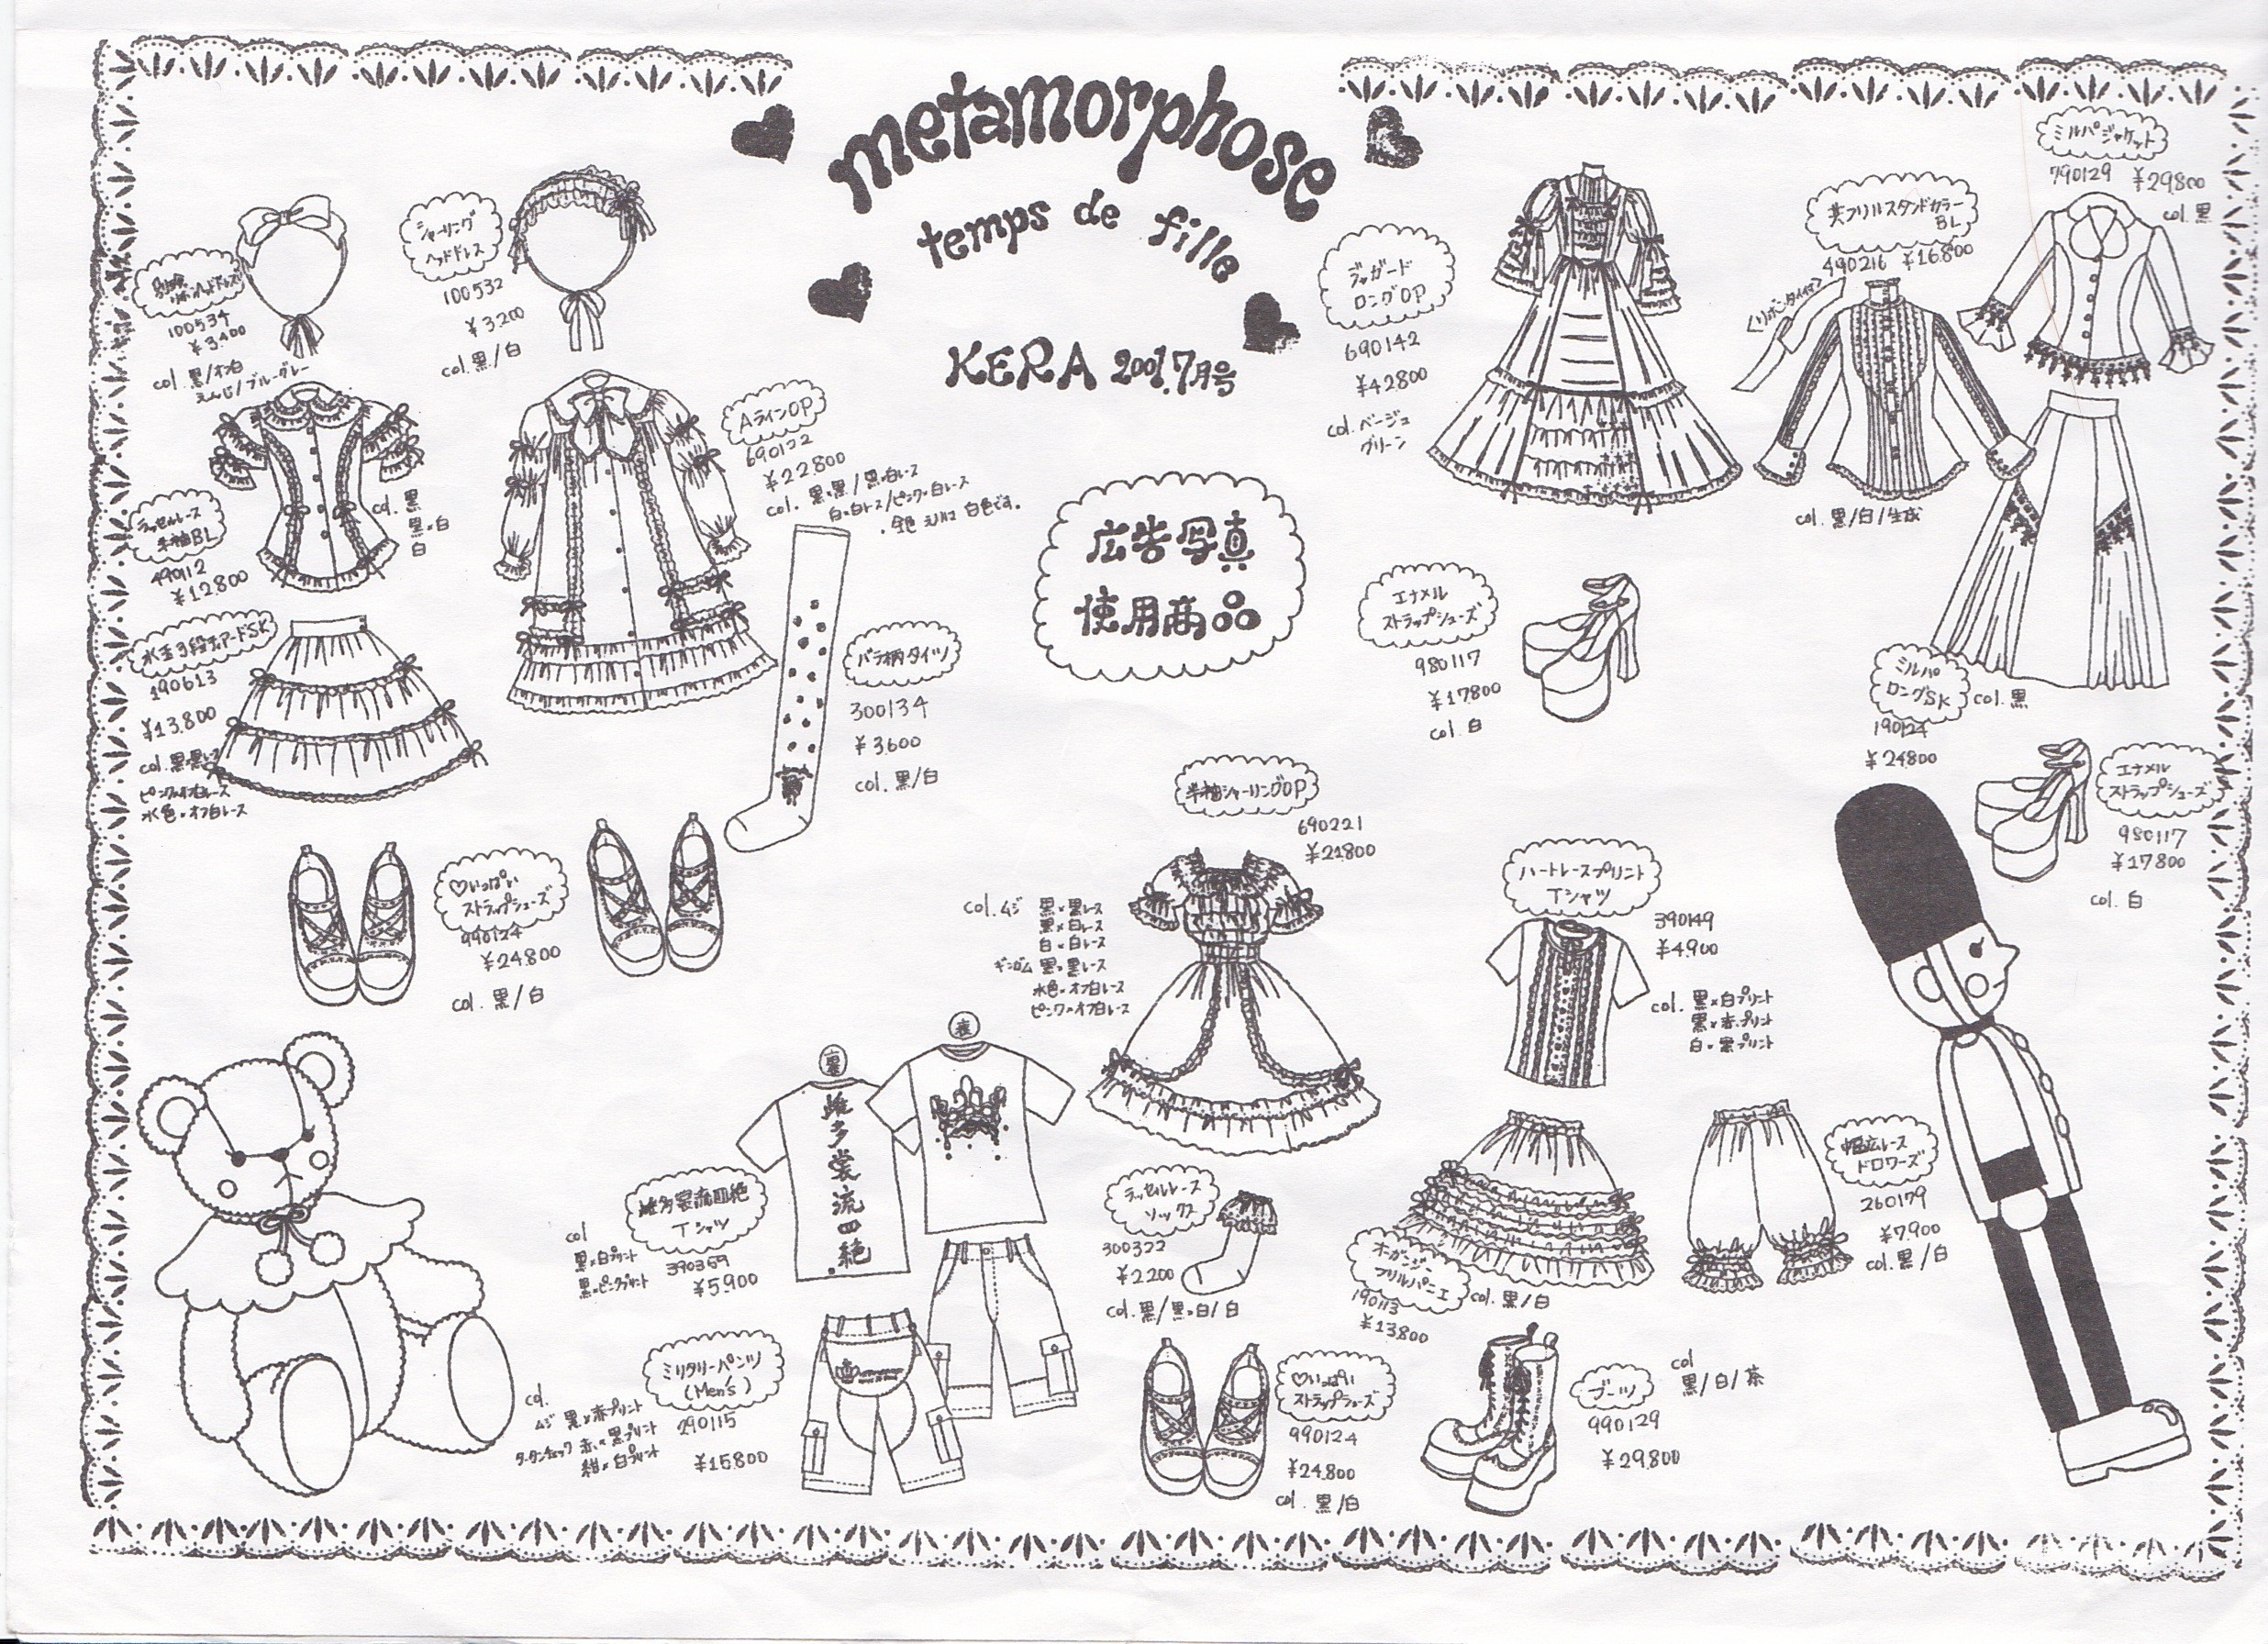 metamorphose
temps de fille
KERA 2001.7月号
広告写真
使用商品
リボンヘッドドレス
100534
¥3400
col. 黒/オフ白
えんじ/ブルーグレー
シャーリング
ヘッドドレス
100532
¥3200
col. 黒/白
ラッセルレース
半袖BL
490112
¥12800
col. 黒
黒×白
白
AラインOP
690122
¥22800
col. 黒×黒/黒×白レース
白×白レース/ピンク×白レース
・全色 エリは 白色です。
水玉3段ティアードSK
190613
¥13.800
col. 黒×黒レース
ピンク×オフ白レース
水色×オフ白レース
バラ柄タイツ
300134
¥3600
col. 黒/白
♡いっぱい
ストラップシューズ
990124
¥24.800
col. 黒/白
ジャガード
ロングOP
690142
¥42800
col. ベージュ
グリーン
共フリルスタンドカラー
BL
490216 ¥16.800
<リボンタイ付>
col. 黒/白/生成
ミルパジャケット
790129 ¥29800
col. 黒
エナメル
ストラップシューズ
980117
¥17800
col. 白
ミルパ
ロングSK
col. 黒
190124
¥24800
エナメル
ストラップシューズ
980117
¥17800
col. 白
半袖シャーリングOP
690221
¥21800
col. ムジ 黒×黒レース
黒×白レース
白×白レース
ギンガム 黒×黒レース
水色×オフ白レース
ピンク×オフ白レース
ハートレースプリント
Tシャツ
390149
¥4.900
col. 黒×白プリント
黒×赤プリント
白×黒プリント
裏
表
雌多裳流四絶
雌多裳流四絶
Tシャツ
390369
¥5.900
col
黒×白プリント
黒×ピンクプリント
ミリタリーパンツ
(Men's)
290115
¥15800
col.
ムジ 黒×赤プリント
タータンチェック 赤×黒プリント
紺×白プリント
ラッセルレース
ソックス
300322
¥2200
col. 黒/黒×白/白
オーガンジー
フリルパニエ
190113
¥13800
col. 黒/白
幅広レース
ドロワーズ
260179
¥7.900
col. 黒/白
♡いっぱい
ストラップシューズ
990124
¥24.800
col. 黒/白
ブーツ
990129
¥29.800
col
黒/白/茶